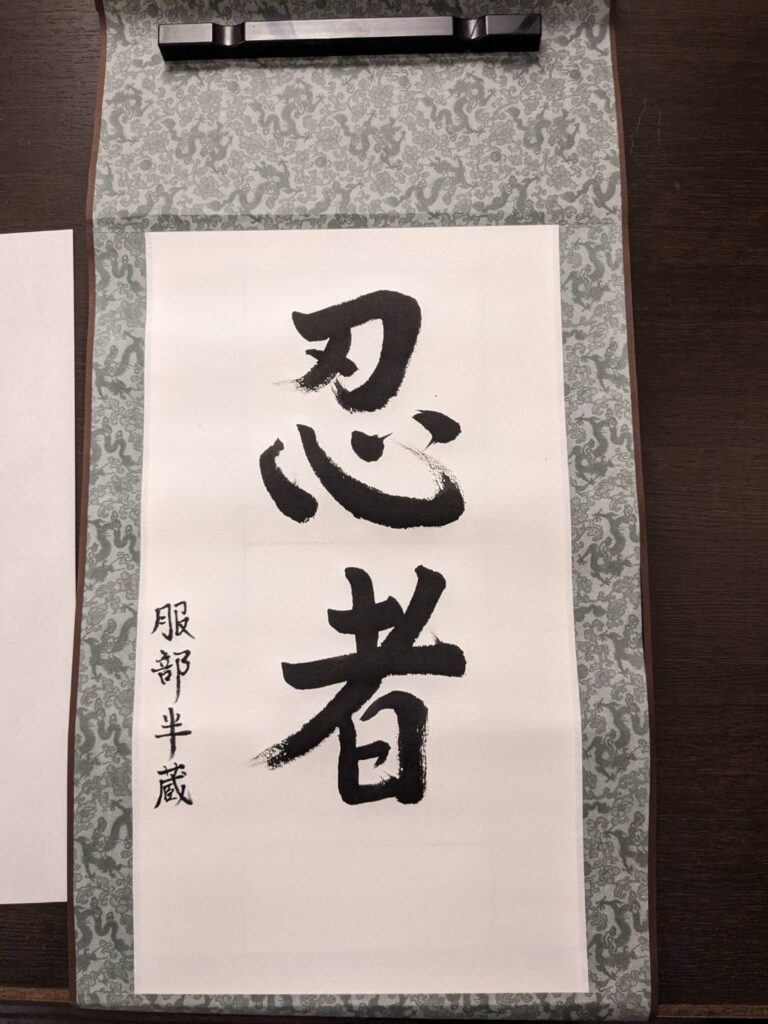 忍者
服部半蔵